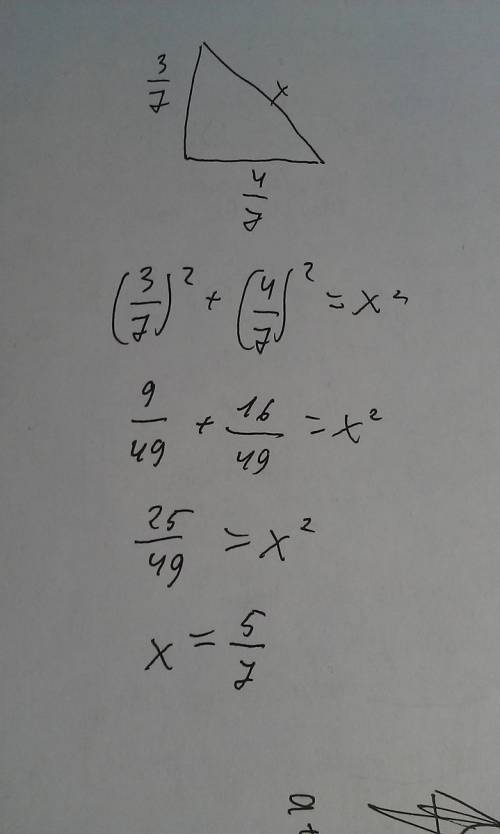 3/7
x
4/7
(3/7)² + (4/7)² = x²
9/49 + 16/49 = x²
25/49 = x²
x = 5/7
a+